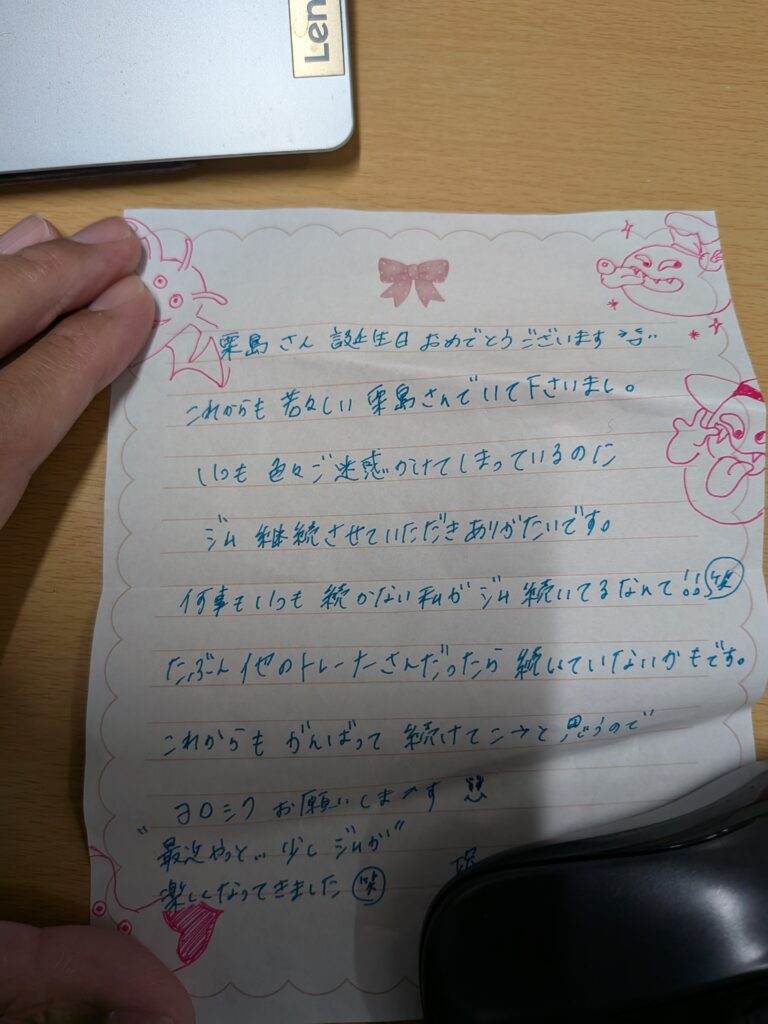 Len
栗島さん 誕生日 おめでとうございます
これからも 若々しい 栗島さんでいて下さいまし。
いつも 色々ご迷惑かけてしまっているのに
ジム 継続させていただき ありがたいです。
何事もいつも 続かない私が ジム 続いてるなんて!! 笑
たぶん 他のトレーナーさんだったら 続いていないかもです。
これからも がんばって 続けてこうと思うので
ヨロシク お願いしまーす
"最近やっと... 少し ジムが"
楽しくなってきました 笑